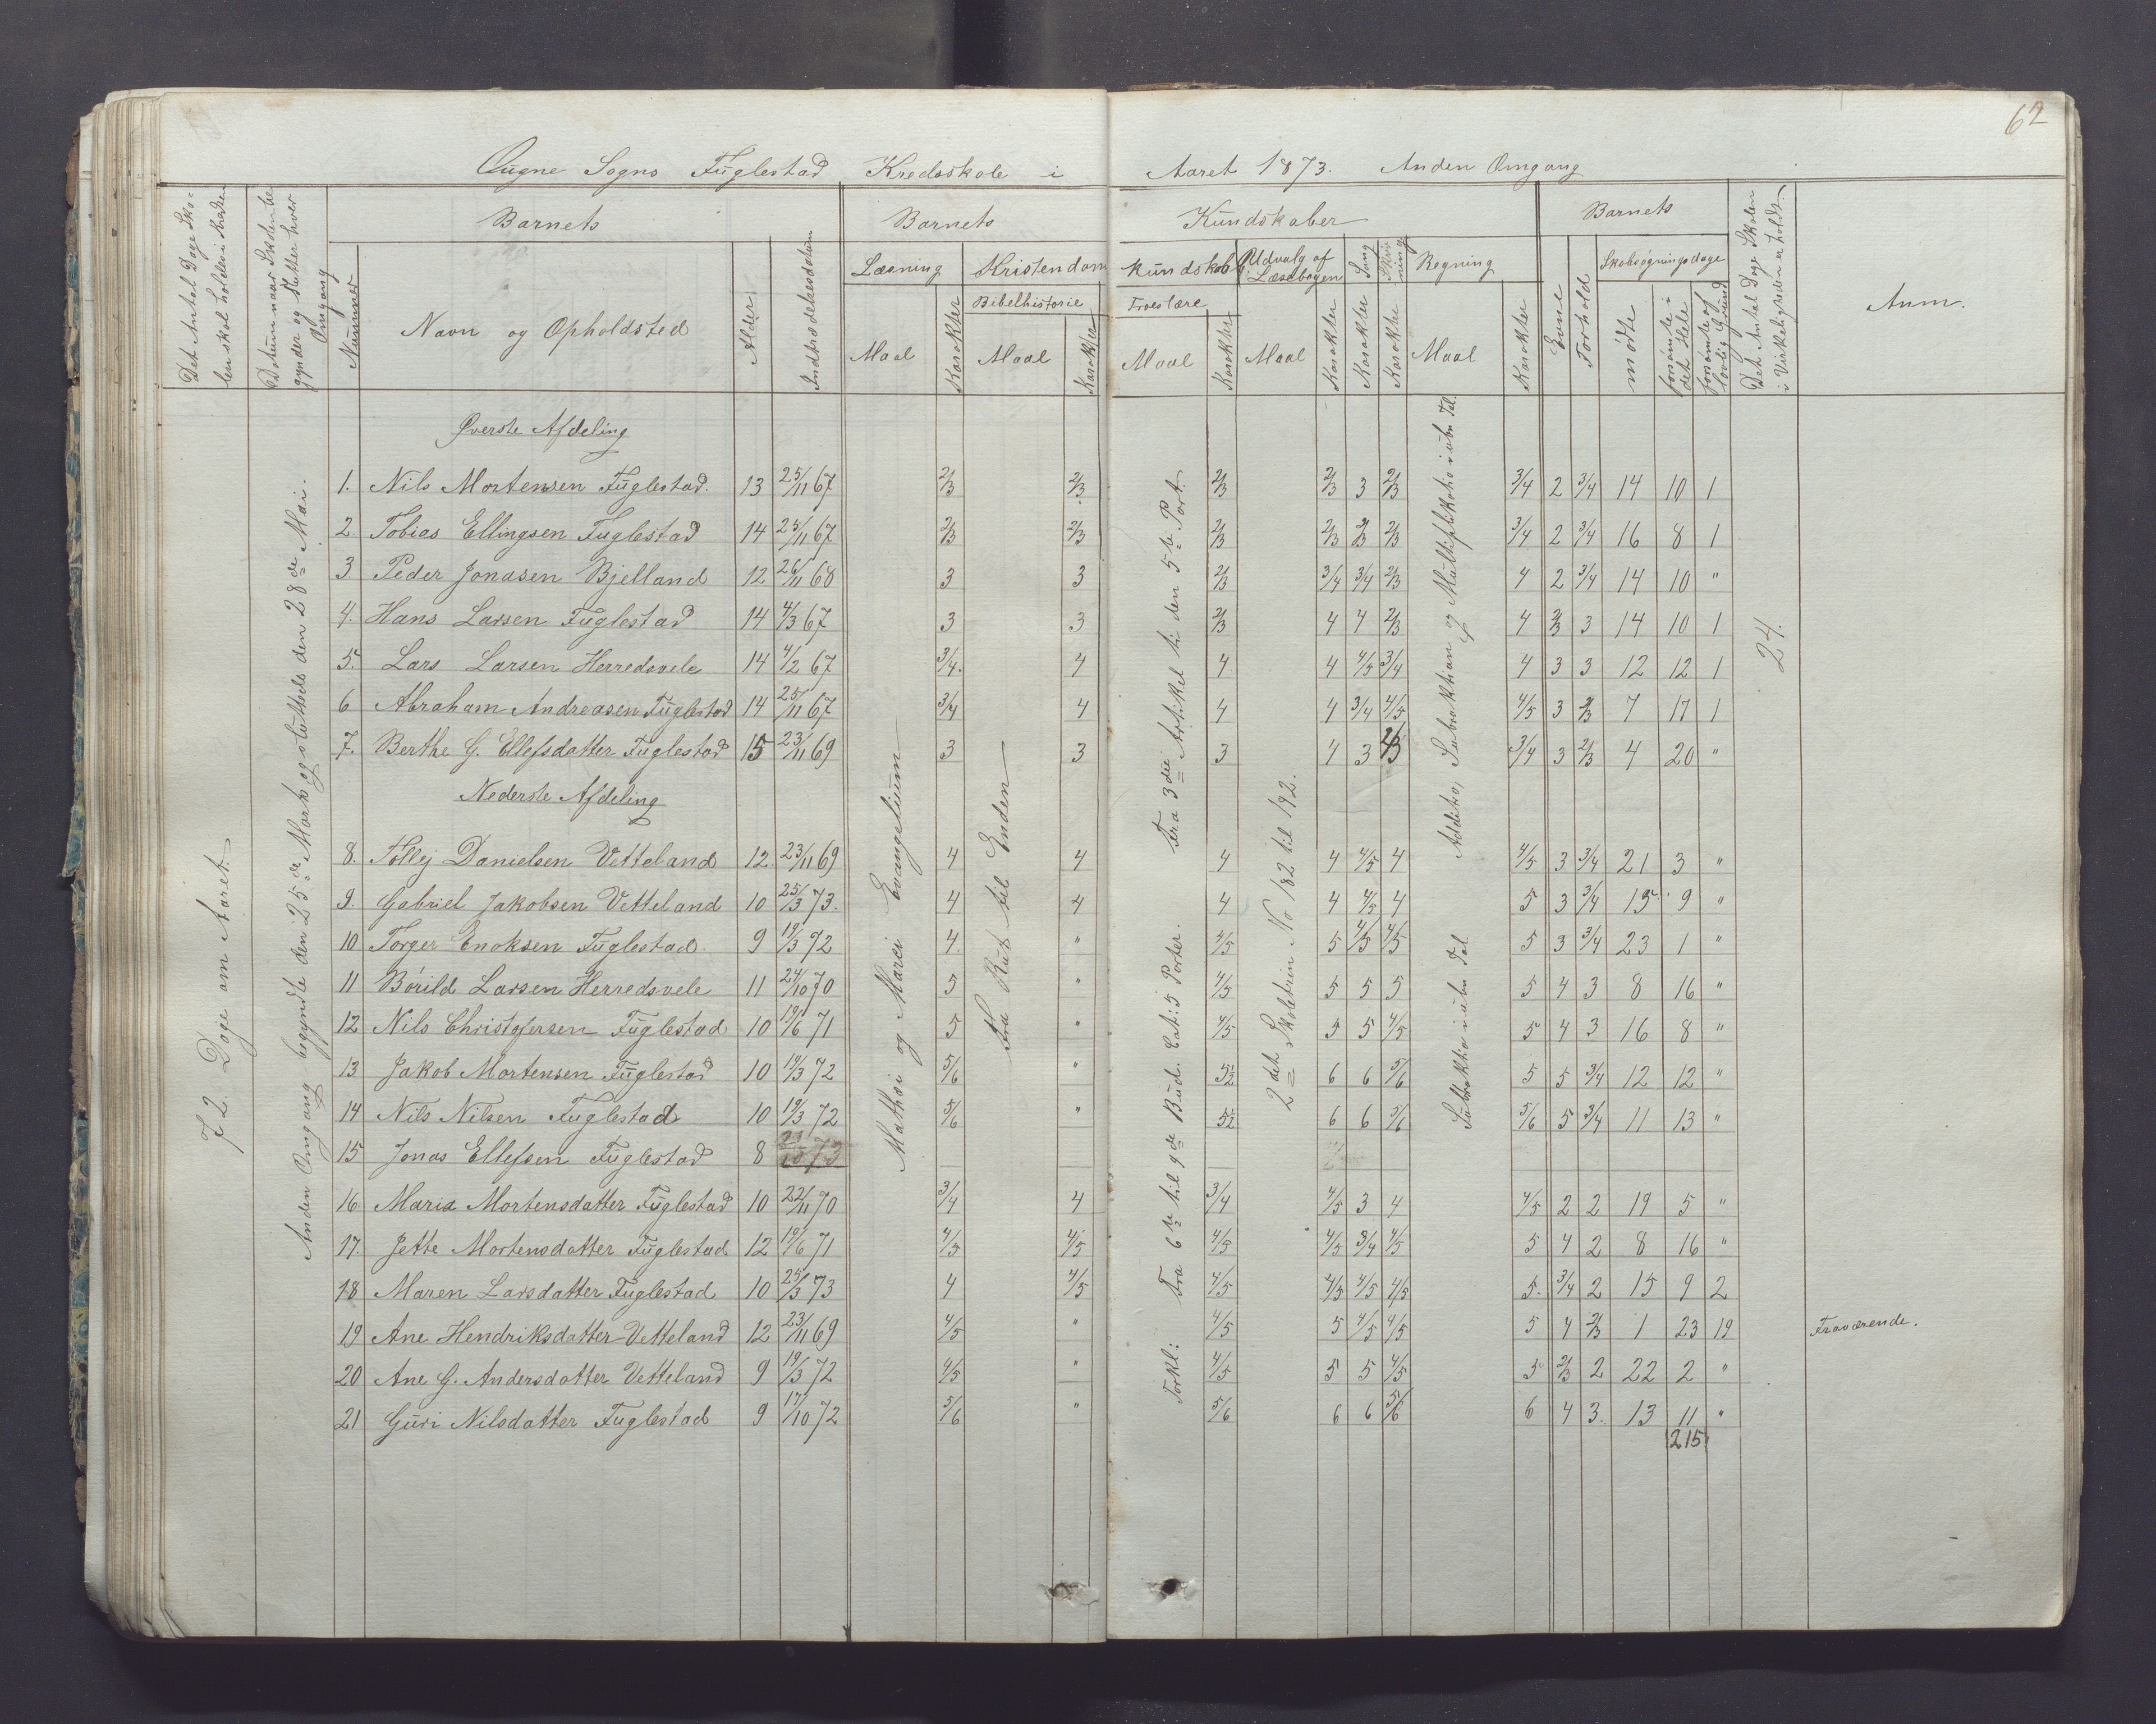 62
Øugne Sogns Fuglestad Kredsskole i Aaret 1873. Anden Omgang
Det Antal Dage Sko-
len skal holdes i Kredsen
Datum naar Skolen be-
gynder og slutter hver
Omgang
Barnets
Nummer
Navn og Opholdsted
Alder
Indtrædelsesdatum
Barnets Kundskaber
Læsning
Maal
Karakter
Kristendomskundskab
Bibelhistorie
Maal
Karakter
Troeslære
Maal
Karakter
Udvalg af
Læsebogen
Maal
Karakter
Sang
Karakter
Skriv-
ning
Karakter
Regning
Maal
Karakter
Barnets
Evne
Forhold
Skolesøgningsdage
mødte
forsømte i
det Hele
forsømte af
lovlig Grund
Det Antal Dage Skolen
i Virkeligheden er holdt.
Anm.
72 Dage om Aaret.
Anden Omgang begyndte den 25de Marts og sluttede den 28de Mai.
Mathæi og Marci Evangelium
Fra Rut til Enden
Fra 3die Artikel til den 5te Part.
Forkl: Fra 6te til 9de Bud. Cat: 5 Parter.
2det Skoletrin No 182 til 192.
Addition, Subraktion og Multiplikation i ubn Tal.
Subraktion i ubn Tal
24.
Øverste Afdeling
1. Nils Mortensen Fuglestad. 13 25/11 67 2/3 2/3 2/3 2/3 3 2/3 3/4 2 3/4 14 10 1
2 Tobias Ellingsen Fuglestad 14 25/11 67 2/3 2/3 2/3 2/3 2/3 2/3 3/4 2 3/4 16 8 1
3 Peder Jonasen Bjelland 12 26/11 68 3 3 2/3 3/4 3/4 2/3 4 2 3/4 14 10 "
4. Hans Larsen Fuglestad 14 4/3 67 3 3 2/3 4 4 2/3 4 2/3 3 14 10 1
5. Lars Larsen Herredsvele 14 4/2 67 3/4. 4 4 4 4/5 3/4 4 3 3 12 12 1
6 Abraham Andreasen Fuglestad 14 25/11 67 3/4 4 4 4 3/4 4/5 4/5 3 2/3 7 17 1
7. Berthe G. Ellefsdatter Fuglestad 15 23/11 69 3 3 3 4 3 2/3 3/4 3 2/3 4 20 "
Nederste Afdeling
8. Tollej Danielsen Vetteland 12 23/11 69 4 4 4 4 4/5 4 4/5 3 3/4 21 3 "
9. Gabriel Jakobsen Vetteland 10 25/3 73. 4 4 4 4 4/5 4 5 3 3/4 15 9 "
10 Torger Enoksen Fuglestad. 9 19/3 72 4 " 4/5 5 4/5 4/5 5 3 3/4 23 1 "
11 Børild Larsen Herredsvele 11 24/10 70 5 " 4/5 5 5 5 5 4 3 8 16 "
12 Nils Christofersen Fuglestad 10 19/6 71 5 " 4/5 5 5 4/5 5 4 3 16 8 "
13 Jakob Mortensen Fuglestad 10 19/3 72 5/6 " 5 1/2 6 6 5/6 5 5 3/4 12 12 "
14 Nils Nilsen Fuglestad 10 19/3 72 5/6 " 5 1/2 6 6 5/6 5/6 5 3/4 11 13 "
15 Jonas Ellefsen Fuglestad 8
16 Maria Mortensdatter Fuglestad 10 22/11 70 3/4 4 3/4 4/5 3 4 4/5 2 2 19 5 "
17. Jette Mortensdatter Fuglestad 12 19/6 71 4/5 4/5 4/5 4/5 3/4 4/5 5 4 2 8 16 "
18 Maren Larsdatter Fuglestad 10 25/3 73 4 4/5 4/5 4/5 4/5 4/5 5. 3/4 2 15 9 2
19 Ane Hendriksdatter Vetteland 12 23/11 69 4/5 " 4/5 5 4/5 4/5 5 4 2/3 1 23 19 Fraværende.
20 Ane G. Andersdatter Vetteland 9 19/3 72 4/5 " 4/5 5 5 4/5 5 2/3 2 22 2 "
21 Guri Nilsdatter Fuglestad 9 17/10 72 5/6 " 5/6 6 6 5/6 6 4 3. 13 11 "
215